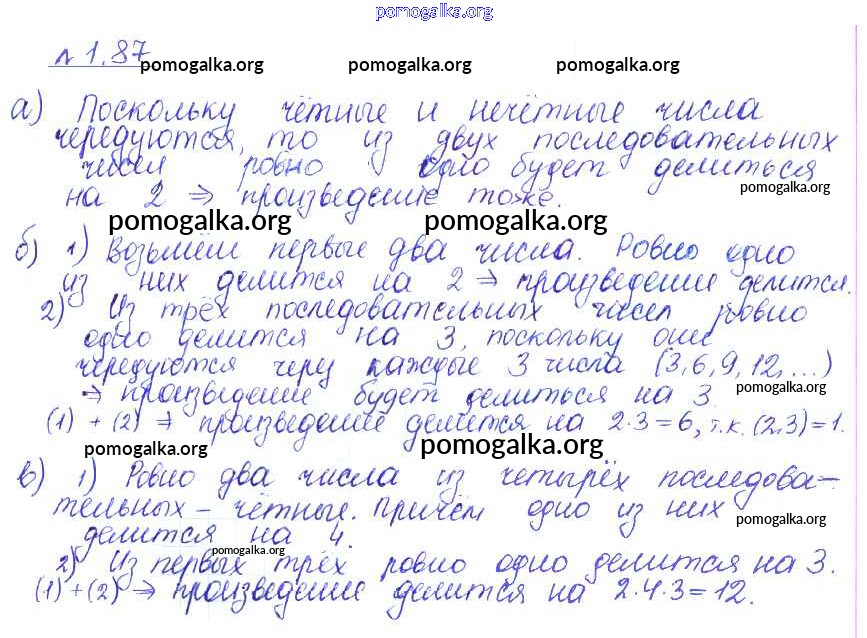 pomogalka.org
№ 1.87
pomogalka.org pomogalka.org pomogalka.org
а) Поскольку чётные и нечётные числа
чередуются, то из двух последовательных
чисел ровно одно будет делиться
на 2 ⇒ произведение тоже.
pomogalka.org
pomogalka.org pomogalka.org
б) 1) Возьмём первые два числа. Ровно одно
из них делится на 2 ⇒ произведение делится.
2) Из трёх последовательных чисел ровно
одно делится на 3, поскольку они
чередуются через каждые 3 числа (3,6,9,12,...)
⇒ произведение будет делиться на 3.
pomogalka.org
(1) + (2) ⇒ произведение делится на 2·3=6, т.к. (2,3)=1.
pomogalka.org pomogalka.org
в) 1) Ровно два числа из четырёх последова-
тельных – чётные. Причём одно из них
pomogalka.org
делится на 4.
pomogalka.org
2) Из первых трёх ровно одно делится на 3.
(1)+(2) ⇒ произведение делится на 2·4·3=12.